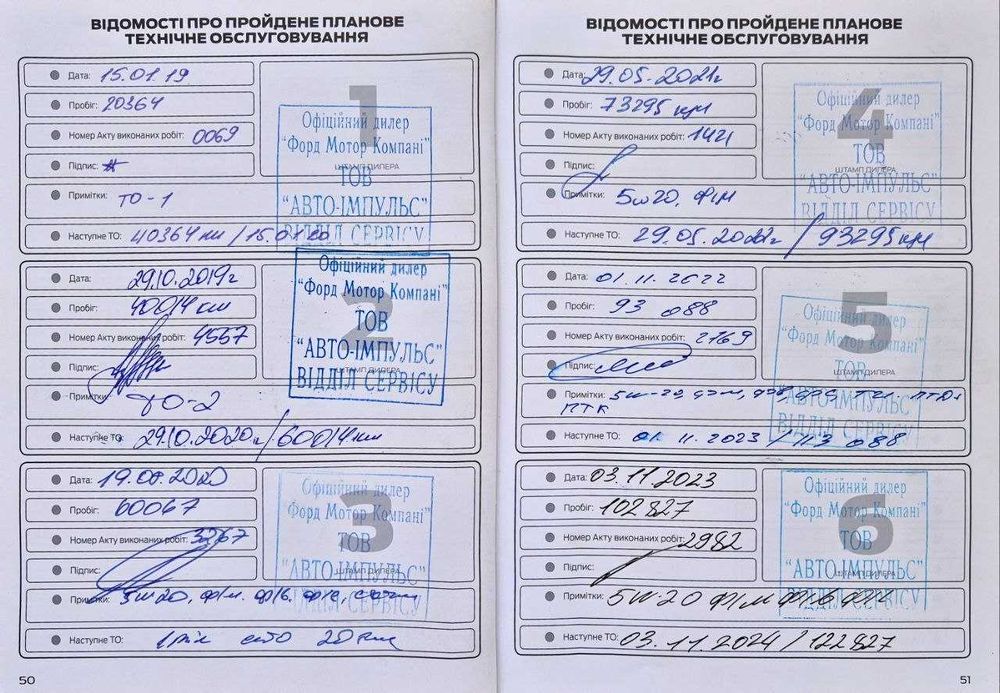 ВІДОМОСТІ ПРО ПРОЙДЕНЕ ПЛАНОВЕ
ТЕХНІЧНЕ ОБСЛУГОВУВАННЯ
1
Дата: 15.01.19
Пробіг: 20364
Номер Акту виконаних робіт: 0069
Підпис:
ШТАМП ДИЛЕРА
Примітки: ТО-1
Наступне ТО: 40364 км / 15.01.20
Офіційний дилер
"Форд Мотор Компані"
ТОВ
"АВТО-ІМПУЛЬС"
ВІДДІЛ СЕРВІСУ
2
Дата: 29.10.2019г
Пробіг: 40014 км
Номер Акту виконаних робіт: 4557
Підпис:
ШТАМП ДИЛЕРА
Примітки: ТО-2
Наступне ТО: 29.10.2020г/60014 км
Офіційний дилер
"Форд Мотор Компані"
ТОВ
"АВТО-ІМПУЛЬС"
ВІДДІЛ СЕРВІСУ
3
Дата: 19.08.2020
Пробіг: 60067
Номер Акту виконаних робіт: 3267
Підпис:
ШТАМП ДИЛЕРА
Примітки: 5w20, ф/м. ф/в, ф/с,
Наступне ТО: 1 рік або 20
Офіційний дилер
"Форд Мотор Компані"
ТОВ
"АВТО-ІМПУЛЬС"
ВІДДІЛ СЕРВІСУ
50
ВІДОМОСТІ ПРО ПРОЙДЕНЕ ПЛАНОВЕ
ТЕХНІЧНЕ ОБСЛУГОВУВАННЯ
4
Дата: 29.05.2021г
Пробіг: 73295 км
Номер Акту виконаних робіт: 1421
Підпис:
ШТАМП ДИЛЕРА
Примітки: 5w20, ф/м
Наступне ТО: 29.05.2022г / 93295 км
Офіційний дилер
"Форд Мотор Компані"
ТОВ
"АВТО-ІМПУЛЬС"
ВІДДІЛ СЕРВІСУ
5
Дата: 01.11.2022
Пробіг: 93 088
Номер Акту виконаних робіт: 2769
Підпис:
ШТАМП ДИЛЕРА
Примітки: 5w-20, ф/м,
ПТК
Наступне ТО: 01.11.2023 / 113 088
Офіційний дилер
"Форд Мотор Компані"
ТОВ
"АВТО-ІМПУЛЬС"
ВІДДІЛ СЕРВІСУ
6
Дата: 03.11.2023
Пробіг: 102827
Номер Акту виконаних робіт: 2982
Підпис:
ШТАМП ДИЛЕРА
Примітки: 5w-20 ф/м ф/в
Наступне ТО: 03.11.2024 / 122827
Офіційний дилер
"Форд Мотор Компані"
ТОВ
"АВТО-ІМПУЛЬС"
ВІДДІЛ СЕРВІСУ
51